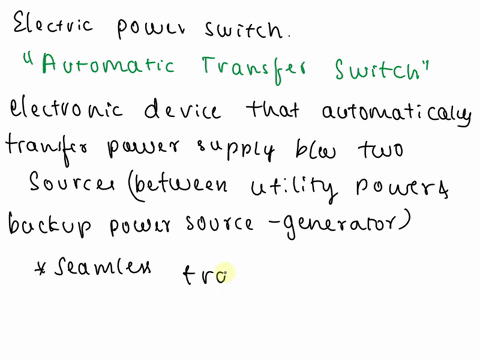 Electric power switch.
"Automatic Transfer Switch"
electronic device that automaticaly
transfer power supply b/w two
Sources (between utility power &
backup power source - generator)
* Seamless tra